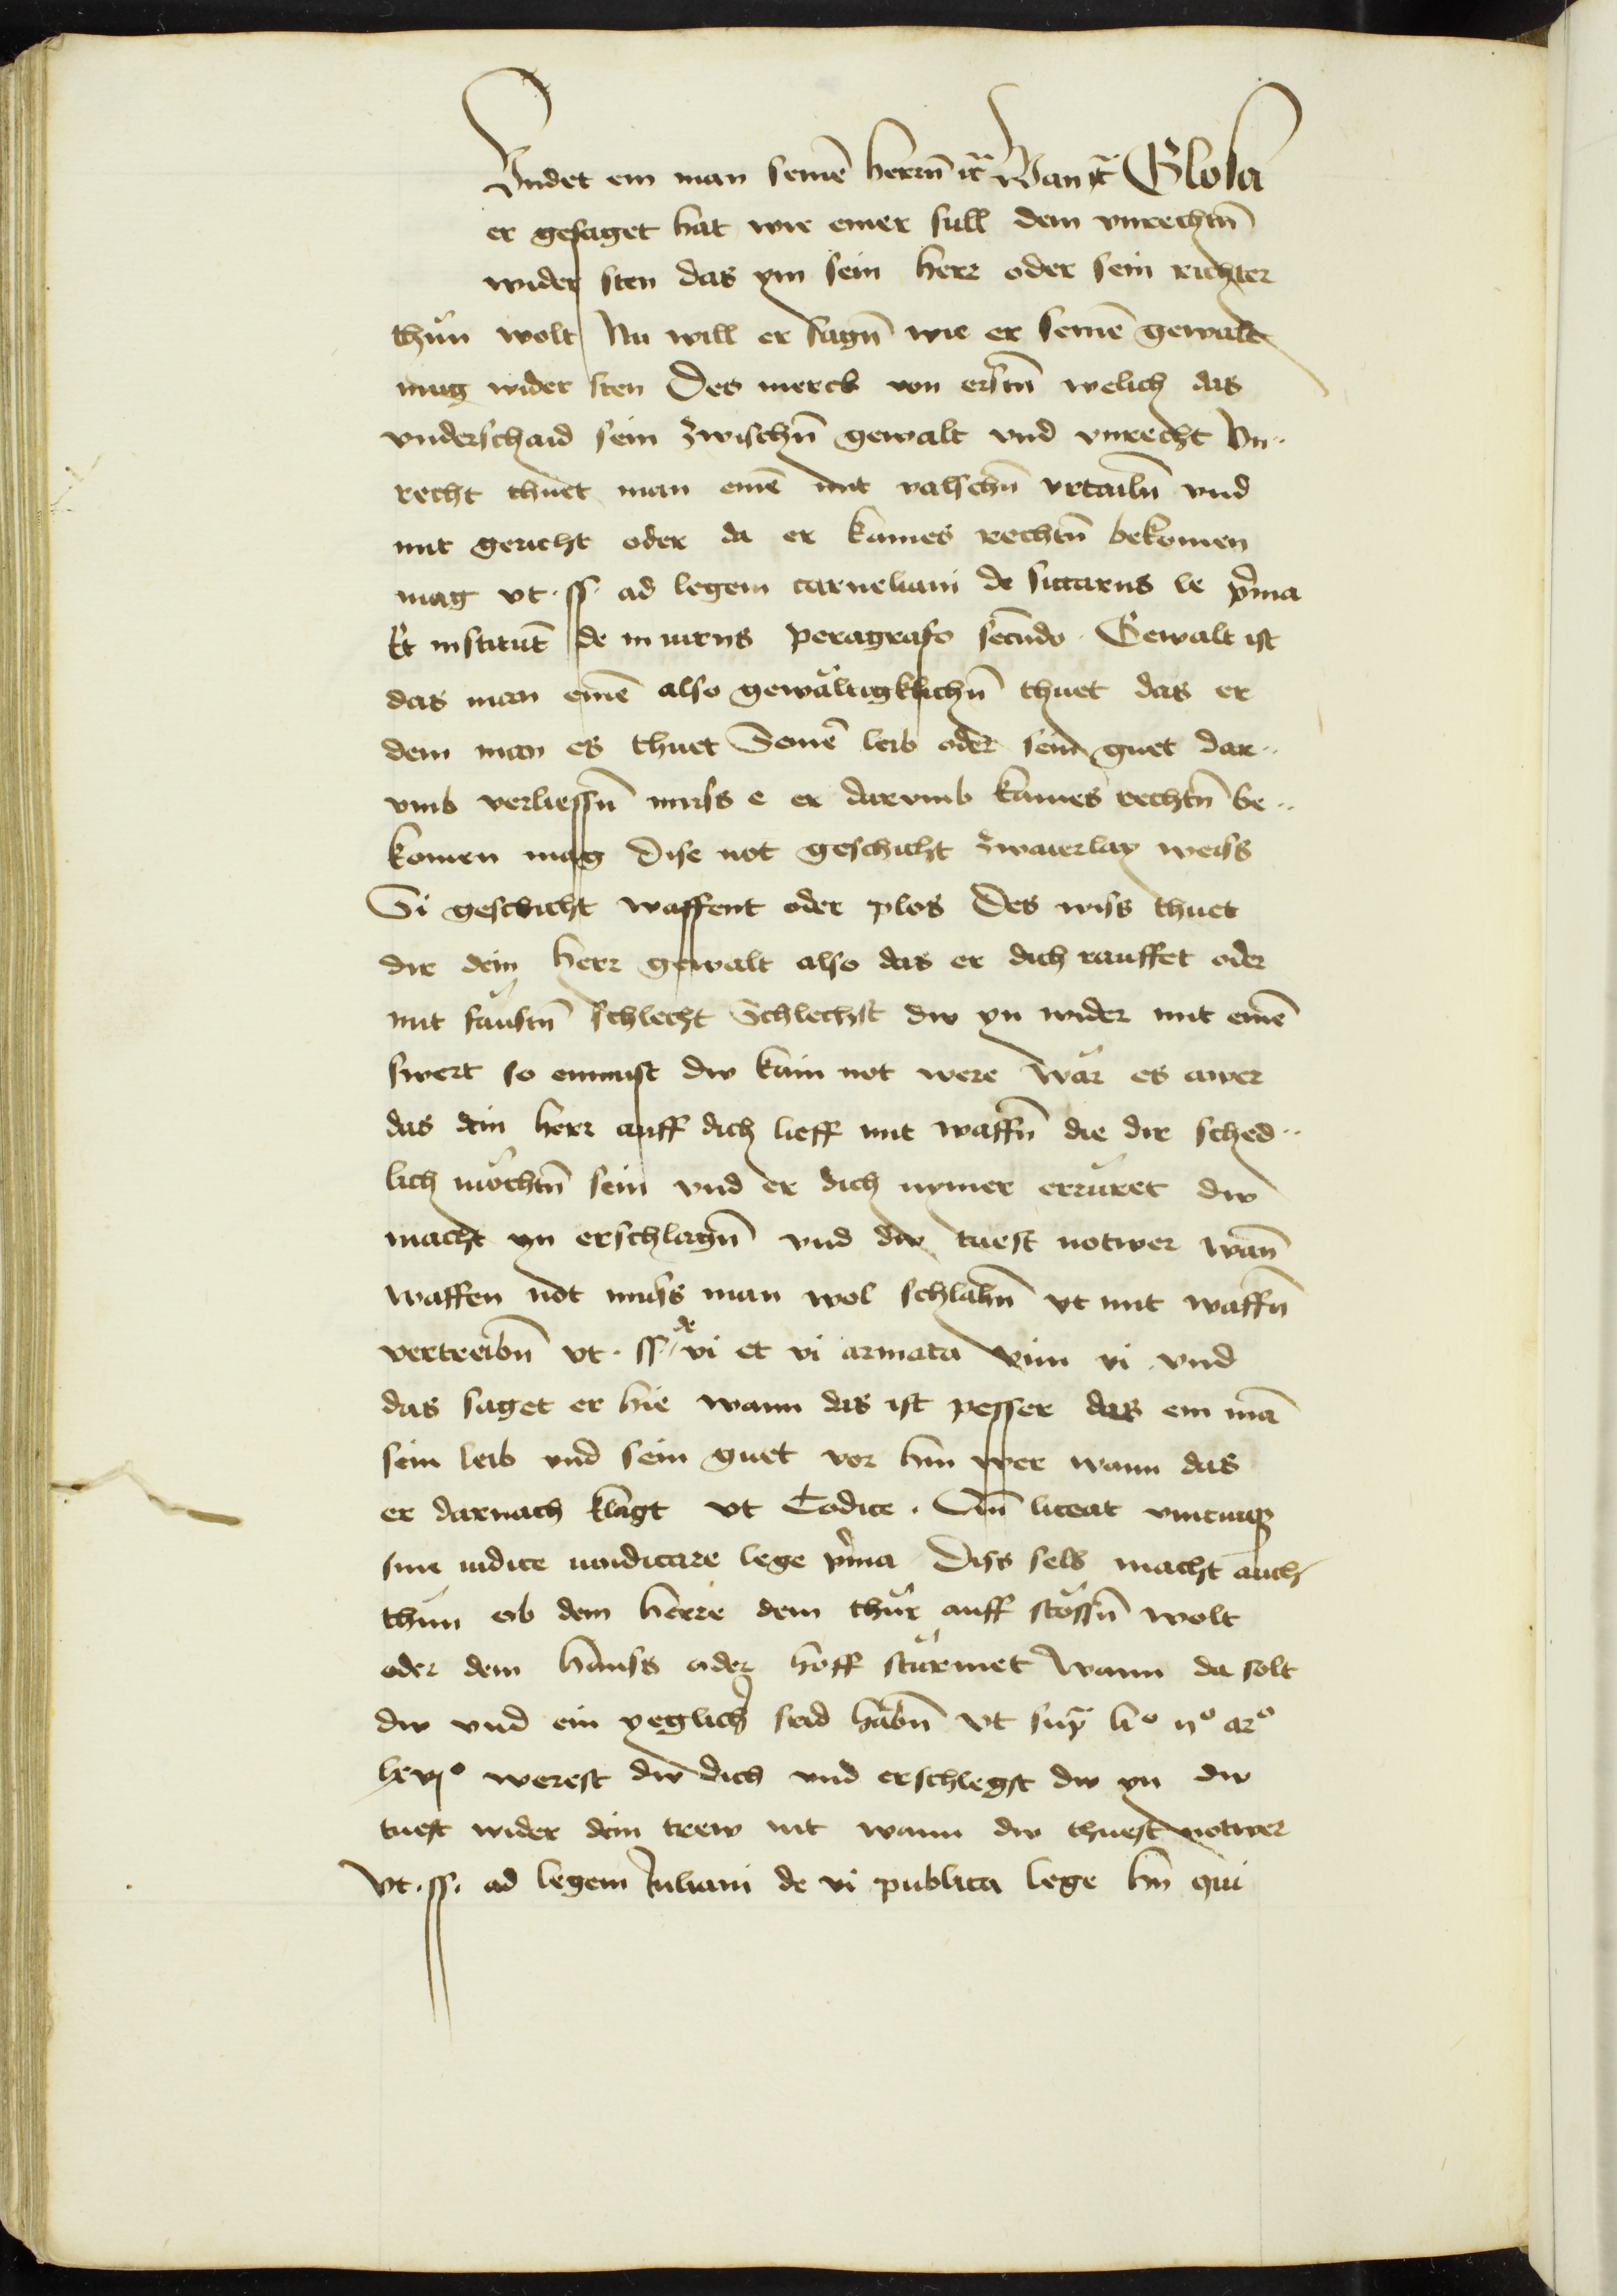 Vndet ein man seinē herrn̄ ꝛc̄ Wan ꝛc̄ Glosa
er gesaget hat wie einer sull dem vnrechtn̄
wider sten das ym sein herr oder sein richter
thun wolt Nu will er sagn̄ wie er seinē gewalt
mug wider sten Des merck von erstn̄ welich das
vnderschaid sein zwischn̄ gewalt vnd vnrecht Vn⸗
recht thuet man einē mit valschn̄ vrtailn̄ vnd
mit gericht oder da er kaines rechtn̄ bekomen
mag vt · ff · ad legem corneliam de siccariis le p̄ma
Et institut̄ de iniuriis peragrafo secūdo · Gewalt ist
das man einē also gewältigklichn̄ thuet das er
dem man es thuet Seinē leib oder sein guet dar⸗
vmb verliessn̄ muss e er darvmb kaines rechtn̄ be⸗
komen mag Dise not geschicht zwaierlay weiss
Si geschicht waffent oder plos Des wiss thuet
dir dein herr gewalt also das er dich rauffet oder
mit faustn̄ schlecht Schlechst dw yn wider mit einē
swert so einmist dw kain not were Wär es awer
das dein herr auff dich lieff mit waffn̄ die dir sched⸗
lich möchtn̄ sein vnd er dich nymer erruret dw
macht yn erschlagn̄ vnd dw tuest notwer wan̄
waffen not muss man wol schlahn̄ vt mit waffn̄
vertreibn̄ vt · ff · de vi et vi armata vim vi · vnd
das saget er hie wann das ist pesser das ein mā
sein leib vnd sein guet vor hin wer wann das
er darnach klagt vt Codice · Qn̄ liceat vnicuiqꝫ
sine iudice uindicare lege p̄ma Diss selb macht auch
thun ob dem herre dein thür auff stössn̄ wolt
oder dein hauss oder hoff stürmet Wann da solt
dw vnd ein yeglicher frid habn̄ vt supͣ liº ijº arº
lxvjº werest dw dich vnd erschlegst dw yn dw
tuest wider dein trew nit wann dw thuest notwer
Vt · ff · ad legem Juliam de vi publica lege hn̄ qui